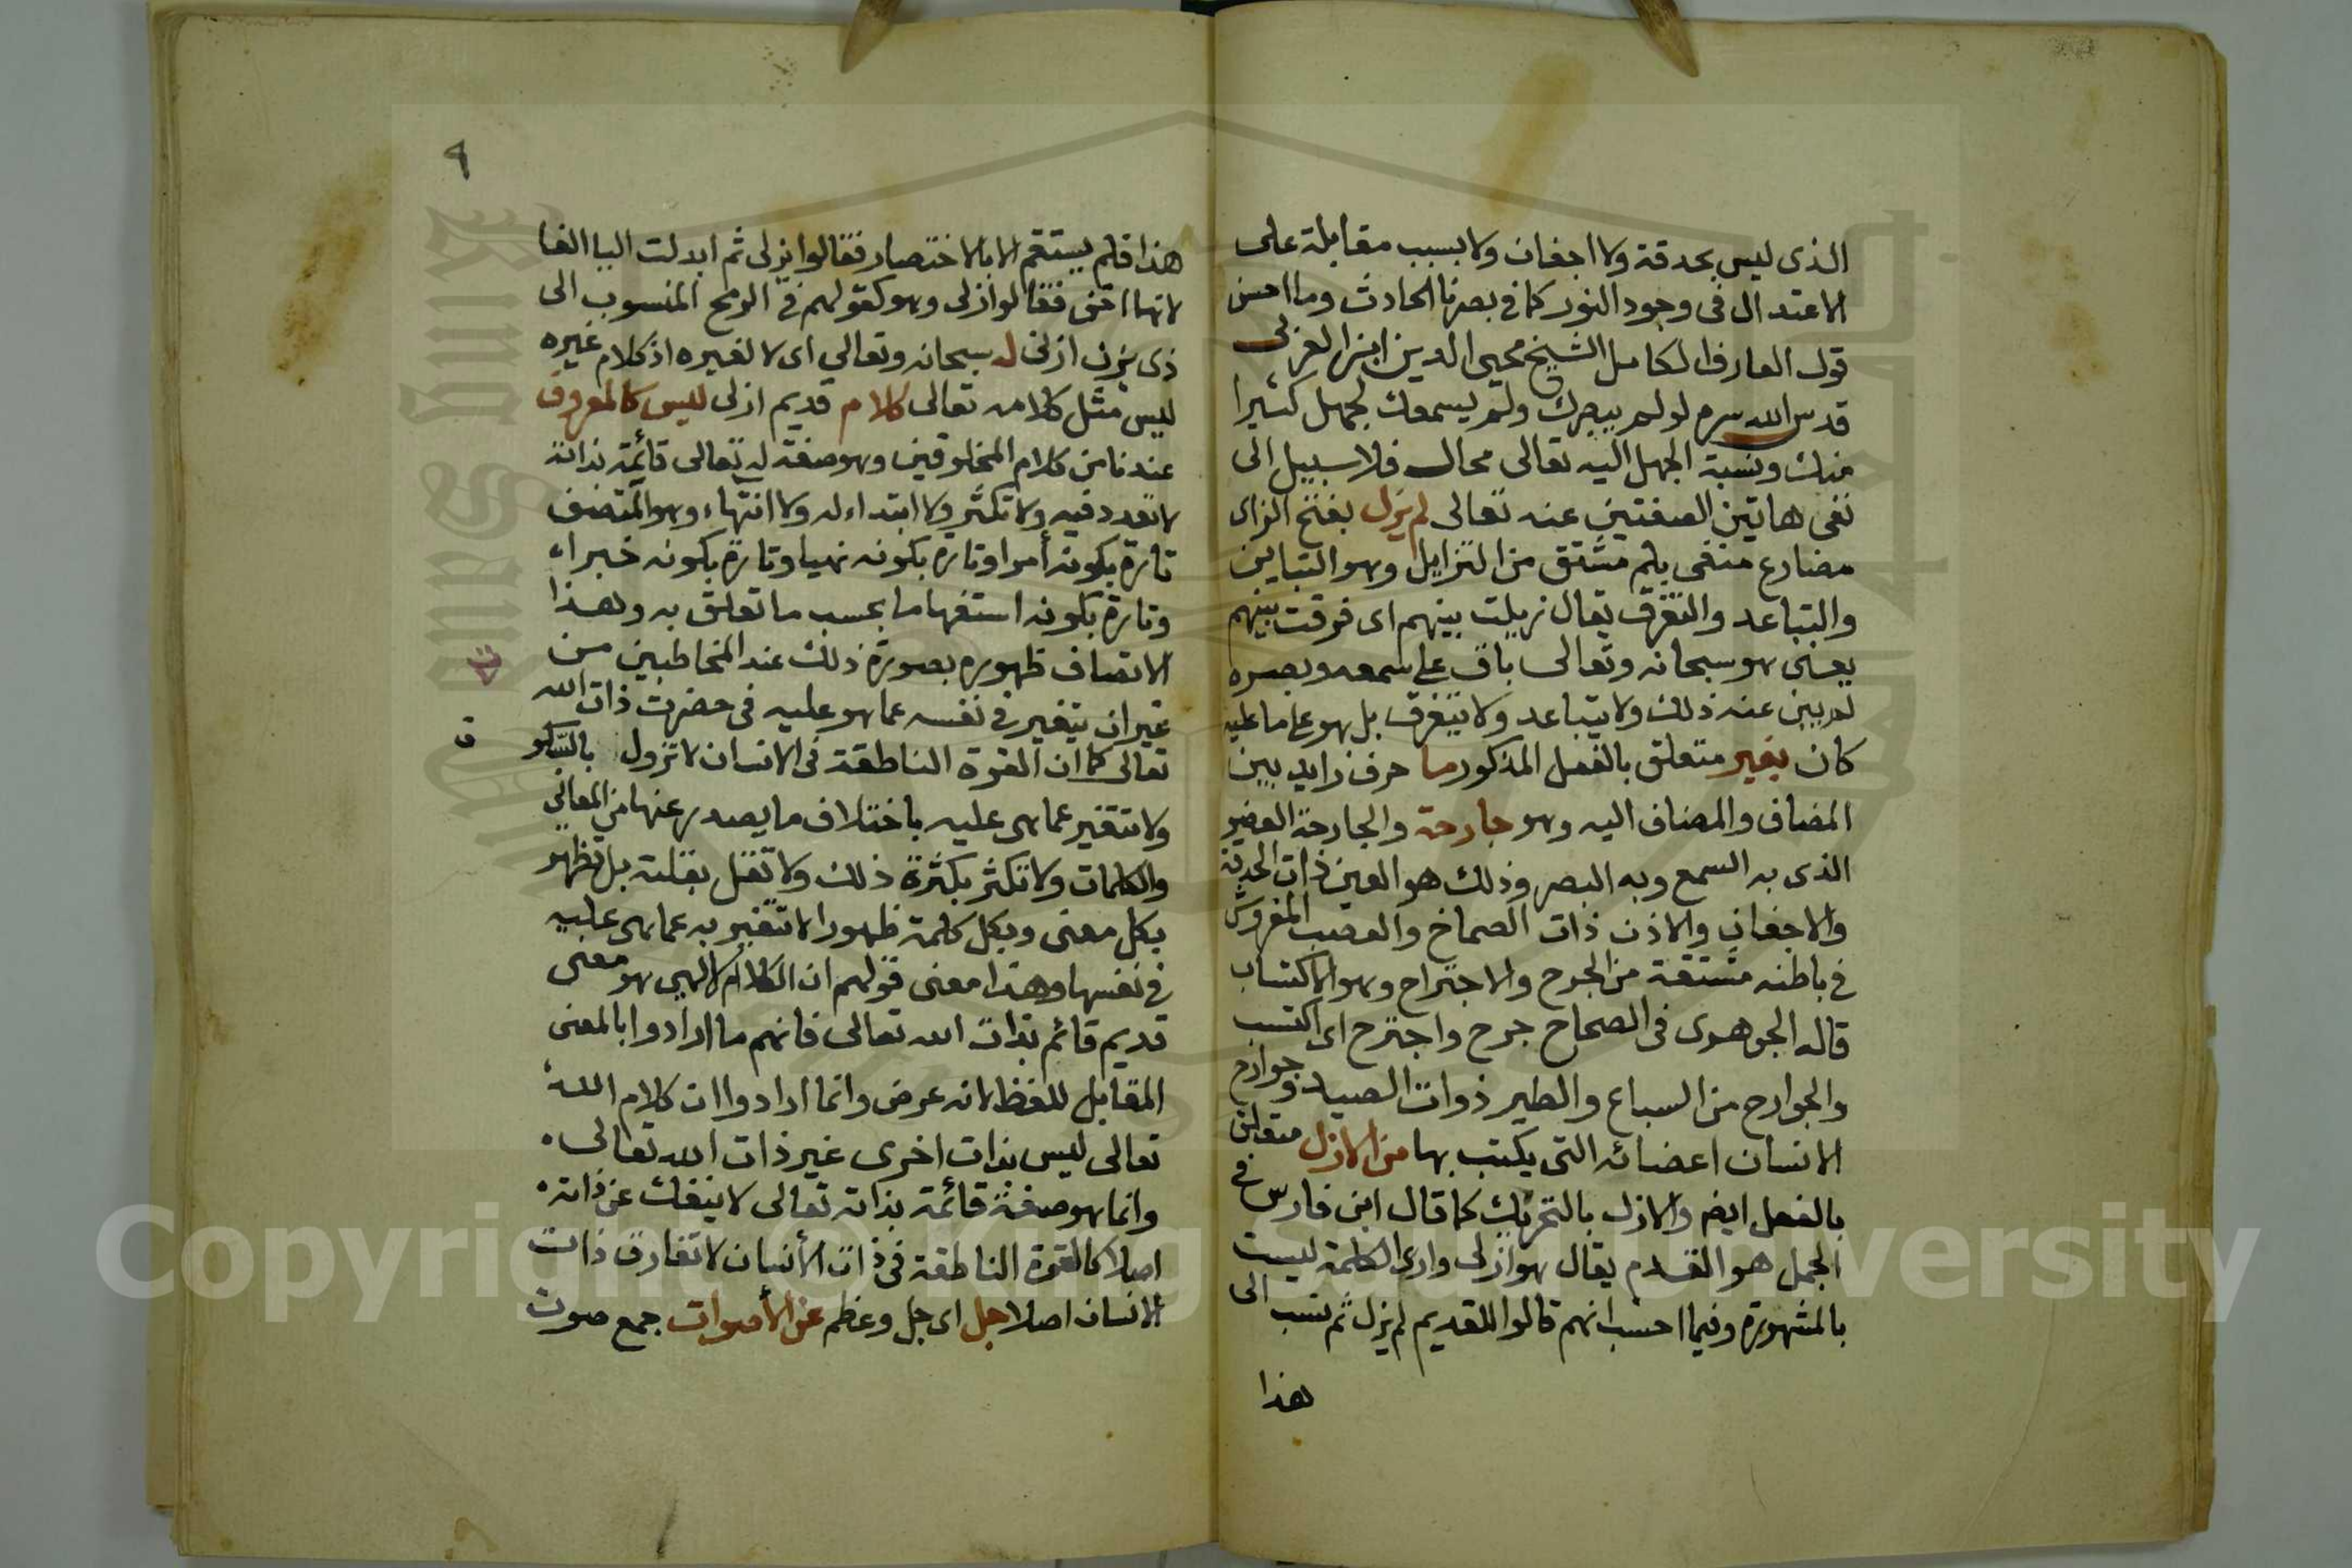 الذى ليس بحدقة ولا اجفان ولا بسبب مقابلة على
الاعتدال فى وجود النور كما فى بصرنا الحادث وما احسن
قول العارف الكامل الشيخ محيى الدين ابن العربى
قدس الله سره لو لم يبصرك ولم يسمعك لجهل كثيرا
منك ونسبة الجهل اليه تعالى محال فلا سبيل الى
نفى هاتين الصفتين عنه تعالى لم يزل بفتح الزاى
مضارع منفى بلم مشتق من التزايل وهو التباين
والتباعد والتفرق يقال زيلت بينهم اى فرقت بينهم
يعنى هو سبحانه وتعالى باق على سمعه وبصره
لم يبن عنه ذلك ولا يتباعد ولا يتفرق بل هو على ما عليه
كان بغير متعلق بالفعل المذكور ما حرف زايد بين
المضاف والمضاف اليه وهو جارحة والجارحة العضو
الذى به السمع وبه البصر وذلك هو العين ذات الحدقة
والاجفان والاذن ذات الصماخ والعصب المفروش
فى باطنه مشتقة من الجرح والاجتراح وهو الاكتساب
قاله الجوهرى فى الصحاح جرح واجترح اى اكتسب
والجوارح من السباع والطير ذوات الصيد وجوارح
الانسان اعضائه التى يكتب بها من الازل متعلق
بالفعل ايضم والازل بالتحريك كما قال ابن فارس فى
المجمل هو القدم يقال هو ازلى وارى الكلمة ليست
بالمشهورة وفيما احسب انهم قالوا للقديم لم يزل ثم نسب الى
هذا
٩
هذا فلم يستقم الا بالاختصار فقالوا يزلى ثم ابدلت اليا الفا
لانها اخف فقالوا ازلى وهو كقولهم فى الرمح المنسوب الى
ذى يزن ازنى له سبحانه وتعالى اى لا لغيره اذ كلام غيره
ليس مثل كلامه تعالى كلام قديم ازلى ليس كالمعروف
عندنا من كلام المخلوقين وهو صفة له تعالى قائمة بذاته
لا تعدد فيه ولا تكثر ولا ابتداء له ولا انتهاء وهو المتصف
تارة بكونه أمرا وتارة بكونه نهيا وتارة بكونه خبراء
وتارة بكونه استفهاما بحسب ما تعلق به وهذا
الاتصاف ظهوره بصورة ذلك عند المخاطبين من
غير ان يتغير فى نفسه عما هو عليه فى حضرت ذات الله
تعالى كما ان القوة الناطقة فى الانسان لا تزول بالسكو
ت
ولا تتغير عما هى عليه باختلاف ما يصدر عنها من المعانى
والكلمات ولا تكثر بكثرة ذلك ولا تقل بقلته بل تظهر
بكل معنى وبكل كلمة ظهورا لا تتغير به عما هى عليه
فى نفسها وهذا معنى قولهم ان الكلام الالهى هو معنى
قديم قائم بذات الله تعالى فانهم ما ارادوا بالمعنى
المقابل للفظ لانه عرض وانما ارادوا ان كلام الله
تعالى ليس بذات اخرى غير ذات الله تعالى
وانما هو صفة قائمة بذاته تعالى لا ينفك عن ذاته
اصلا كالقوة الناطقة فى ذات الأنسان لا تفارق ذات
الانسان اصلا جل اى جل وعظم عن الأصوات جمع صوت
Copyright © King Saud University